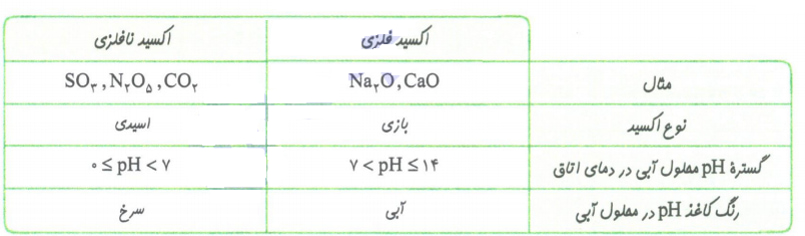 اکسید فلزی	اکسید نافلزی
مثال	Na۲O, CaO	SO۳, N۲O۵, CO۲
نوع اکسید	بازی	اسیدی
گسترهٔ pH محلول آبی در دمای اتاق	۷ < pH ≤ ۱۴	۰ ≤ pH < ۷
رنگ کاغذ pH در محلول آبی	آبی	سرخ